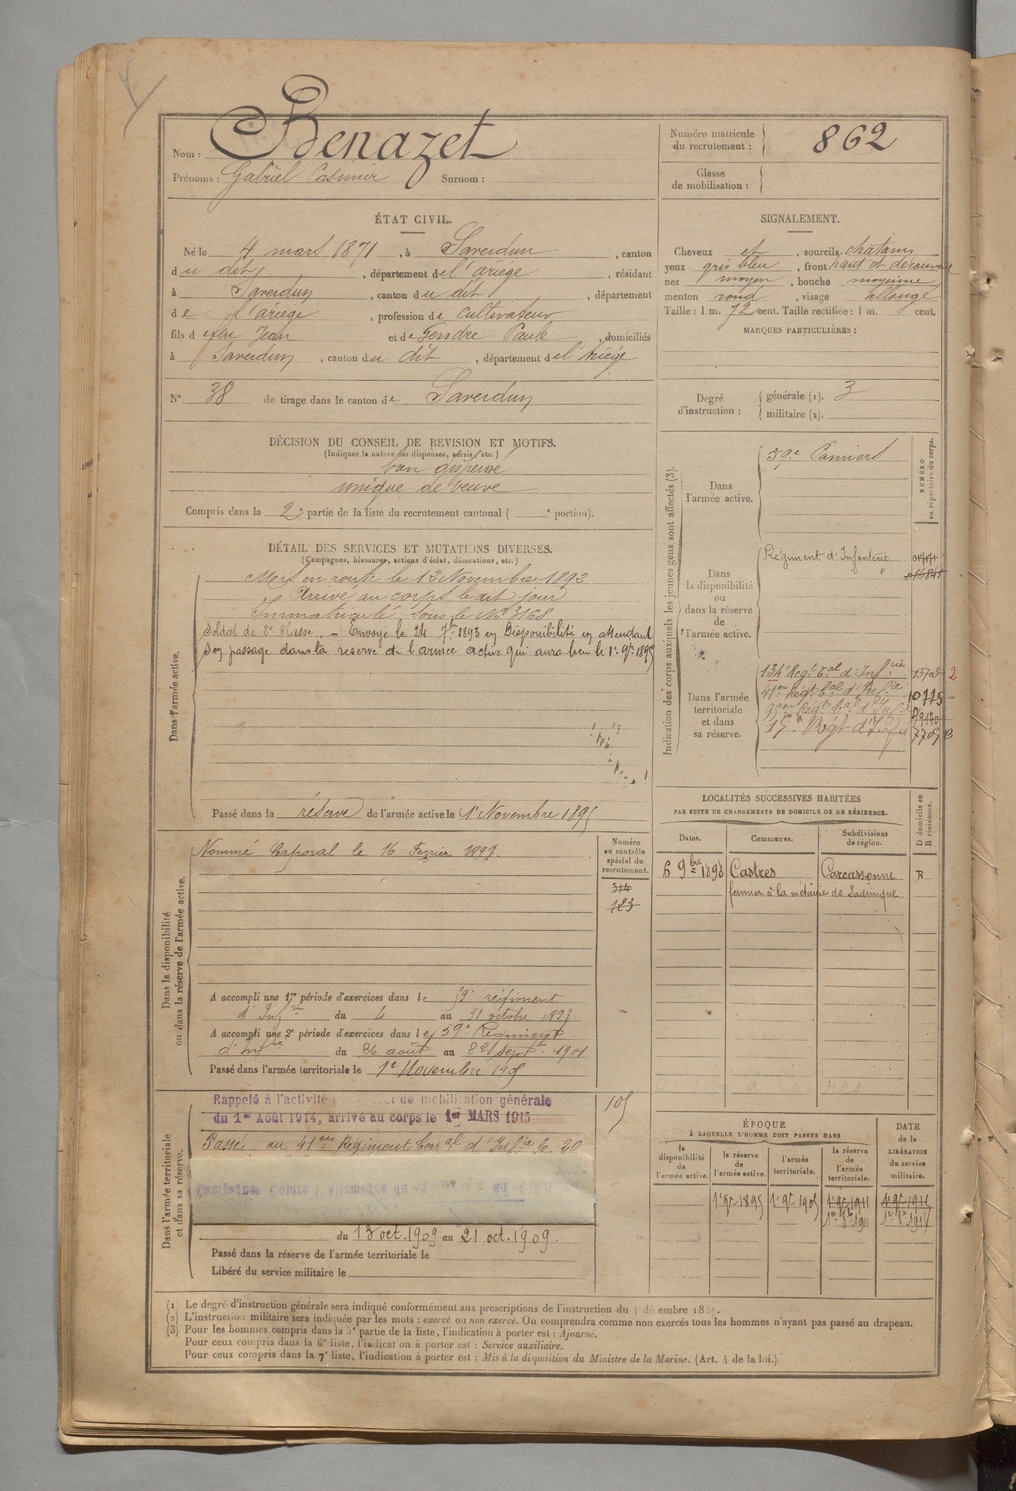 Nom : Benazet
Prénoms : Gabriel Casimir Surnom :
Numéro matricule du recrutement : 862
Classe de mobilisation :
ÉTAT CIVIL.
Né le 4 mars 1871, à Saverdun, canton
du dit, département de l'ariège, résidant
à Saverdun, canton du dit, département
de l'ariège, profession de Cultivateur
fils de feu Jean et de Tendre Paule, domiciliés
à Saverdun, canton du dit, département de l'Ariége
N° 38 de tirage dans le canton de Saverdun
SIGNALEMENT.
Cheveux et, sourcils chatains
yeux gris bleu, front haut et découvert
nez moyen, bouche moyenne
menton rond, visage allongé
Taille : 1 m. 72 cent. Taille rectifiée : 1 m. cent.
MARQUES PARTICULIÈRES :
Degré d'instruction : générale (1). 3
militaire (2).
DÉCISION DU CONSEIL DE REVISION ET MOTIFS.
(Indiquer la nature des dispenses, sursis, etc.)
bon dispensé
unique de veuve
Compris dans la 2e partie de la liste du recrutement cantonal ( e portion).
DÉTAIL DES SERVICES ET MUTATIONS DIVERSES.
(Campagnes, blessures, actions d'éclat, décorations, etc.)
Dans l'armée active.
Mis en route le 12 Novembre 1892
Arrivé au corps le dit jour
Immatriculé sous le N° 3168
Soldat de 2e classe. – Envoyé le 24 7bre 1893 en Disponibilité en attendant
son passage dans la reserve de l'armée active qui aura lieu le 1er 9bre 1895
Passé dans la réserve de l'armée active le 1er Novembre 1895
Indication des corps auxquels les jeunes gens sont affectés (3).
NUMÉRO au répertoire du corps.
Dans l'armée active.
59e Pamiers
Dans la disponibilité ou dans la réserve de l'armée active.
Régiment d'Infanterie
Dans l'armée territoriale et dans sa réserve.
134e Régt Tal d'Infrie
41e Régt Tal d'Infie 10775
Régt d'Infie
LOCALITÉS SUCCESSIVES HABITÉES
PAR SUITE DE CHANGEMENTS DE DOMICILE OU DE RÉSIDENCE.
Dates. Communes. Subdivisions de région. D domicile ou R résidence.
6 9bre 1898 Castres Carcassonne R
fermier à la métairie de
Dans la disponibilité ou dans la réserve de l'armée active.
Nommé Caporal le 16 Fevrier 1897.
Numéro au contrôle spécial du recrutement.
314
123
A accompli une 1re période d'exercices dans le 59e régiment
d'Infrie du 4 au 31 octobre 1897
A accompli une 2e période d'exercices dans le 59e Régiment
d'infie du 26 août au 22 sept. 1901
Passé dans l'armée territoriale le 1er Novembre 1905
Dans l'armée territoriale et dans sa réserve.
Rappelé à l'activité de mobilisation générale
du 1er Août 1914, arrivé au corps le 1er MARS 1915
105
Passé au 41me Régiment Terral d'Infie le 20
Campagne Contre l'Allemagne du
du 13 oct. 1909 au 21 oct. 1909.
Passé dans la réserve de l'armée territoriale le
Libéré du service militaire le
ÉPOQUE
A LAQUELLE L'HOMME DOIT PASSER DANS
la disponibilité de l'armée active. la réserve de l'armée active. l'armée territoriale. la réserve de l'armée territoriale. DATE de la LIBÉRATION du service militaire.
1er 9bre 1895 1er 9bre 1905 1er 9bre 1911
(1) Le degré d'instruction générale sera indiqué conformément aux prescriptions de l'instruction du 4 décembre
(2) L'instruction militaire sera indiquée par les mots : exercé ou non exercé. On comprendra comme non exercés tous les hommes n'ayant pas passé au drapeau.
(3) Pour les hommes compris dans la 5e partie de la liste, l'indication à porter est : Ajourné.
Pour ceux compris dans la 6e liste, l'indication à porter est : Service auxiliaire.
Pour ceux compris dans la 7e liste, l'indication à porter est : Mis à la disposition du Ministre de la Marine. (Art. 4 de la loi.)